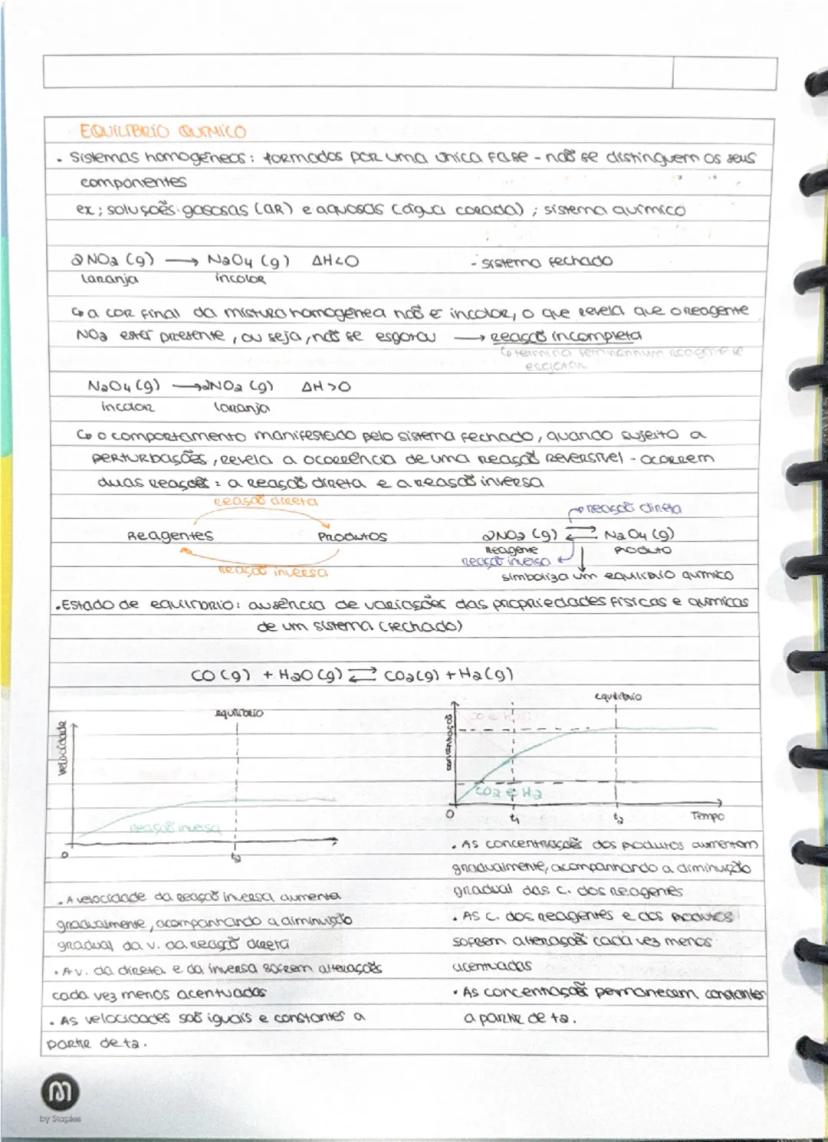 EQUILIBRIO QUIMICO
. Sistemas homogéneos: formados por uma unica fase - não se distinguem os seus
componentes
ex; soluções gasosas (AR) e aquosas (água corada); sistema quimico
2NO2 (g) → N2O4 (g) ΔH<0 - sistema fechado
laranja incolor
↳ a cor final da mistura homogénea não é incolor, o que revela que o reagente
NO2 está presente, ou seja, não se esgotou → reação incompleta
N2O4 (g) → 2NO2 (g) ΔH >0
incolor laranja
↳ o comportamento manifestado pelo sistema fechado, quando sujeito a
perturbações, revela a ocorrência de uma reação reversível - ocorrem
duas reações: a reação direta e a reação inversa
reação direta
reação direta
Reagentes Produtos 2NO2 (g) ⇄ N2O4 (g)
reagente produto
reação inversa
reação inversa
simboliza um equilibrio quimico
. Estado de equilibrio: ausência de variações das propriedades fisicas e quimicas
de um sistema (fechado)
CO (g) + H2O (g) ⇄ CO2 (g) + H2 (g)
equilibrio
equilibrio
velocidade
concentração
reação inversa
CO2 e H2
0 t2
0 t1 t2 Tempo
. A velocidade da reação inversa aumenta
gradualmente, acompanhando a diminuição
gradual da v. da reação direta
. A v. da direta e da inversa sofrem alterações
cada vez menos acentuadas
. As velocidades são iguais e constantes a
partir de t2.
. As concentrações dos produtos aumentam
gradualmente, acompanhando a diminuição
gradual das c. dos reagentes
. As c. dos reagentes e dos produtos
sofrem alterações cada vez menos
acentuadas
. As concentrações permanecem constantes
a partir de t2.
M
by Staples